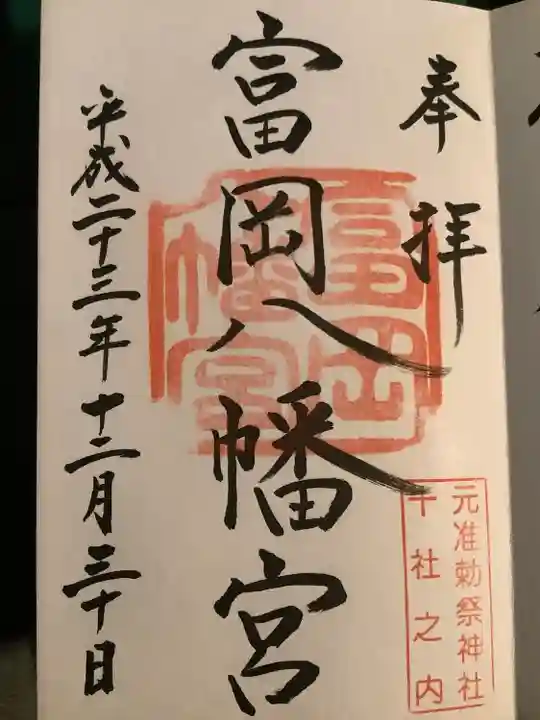 奉拝
元准勅祭神社
十社之内
富岡八幡宮
富岡
八幡宮
平成二十三年十二月三十日